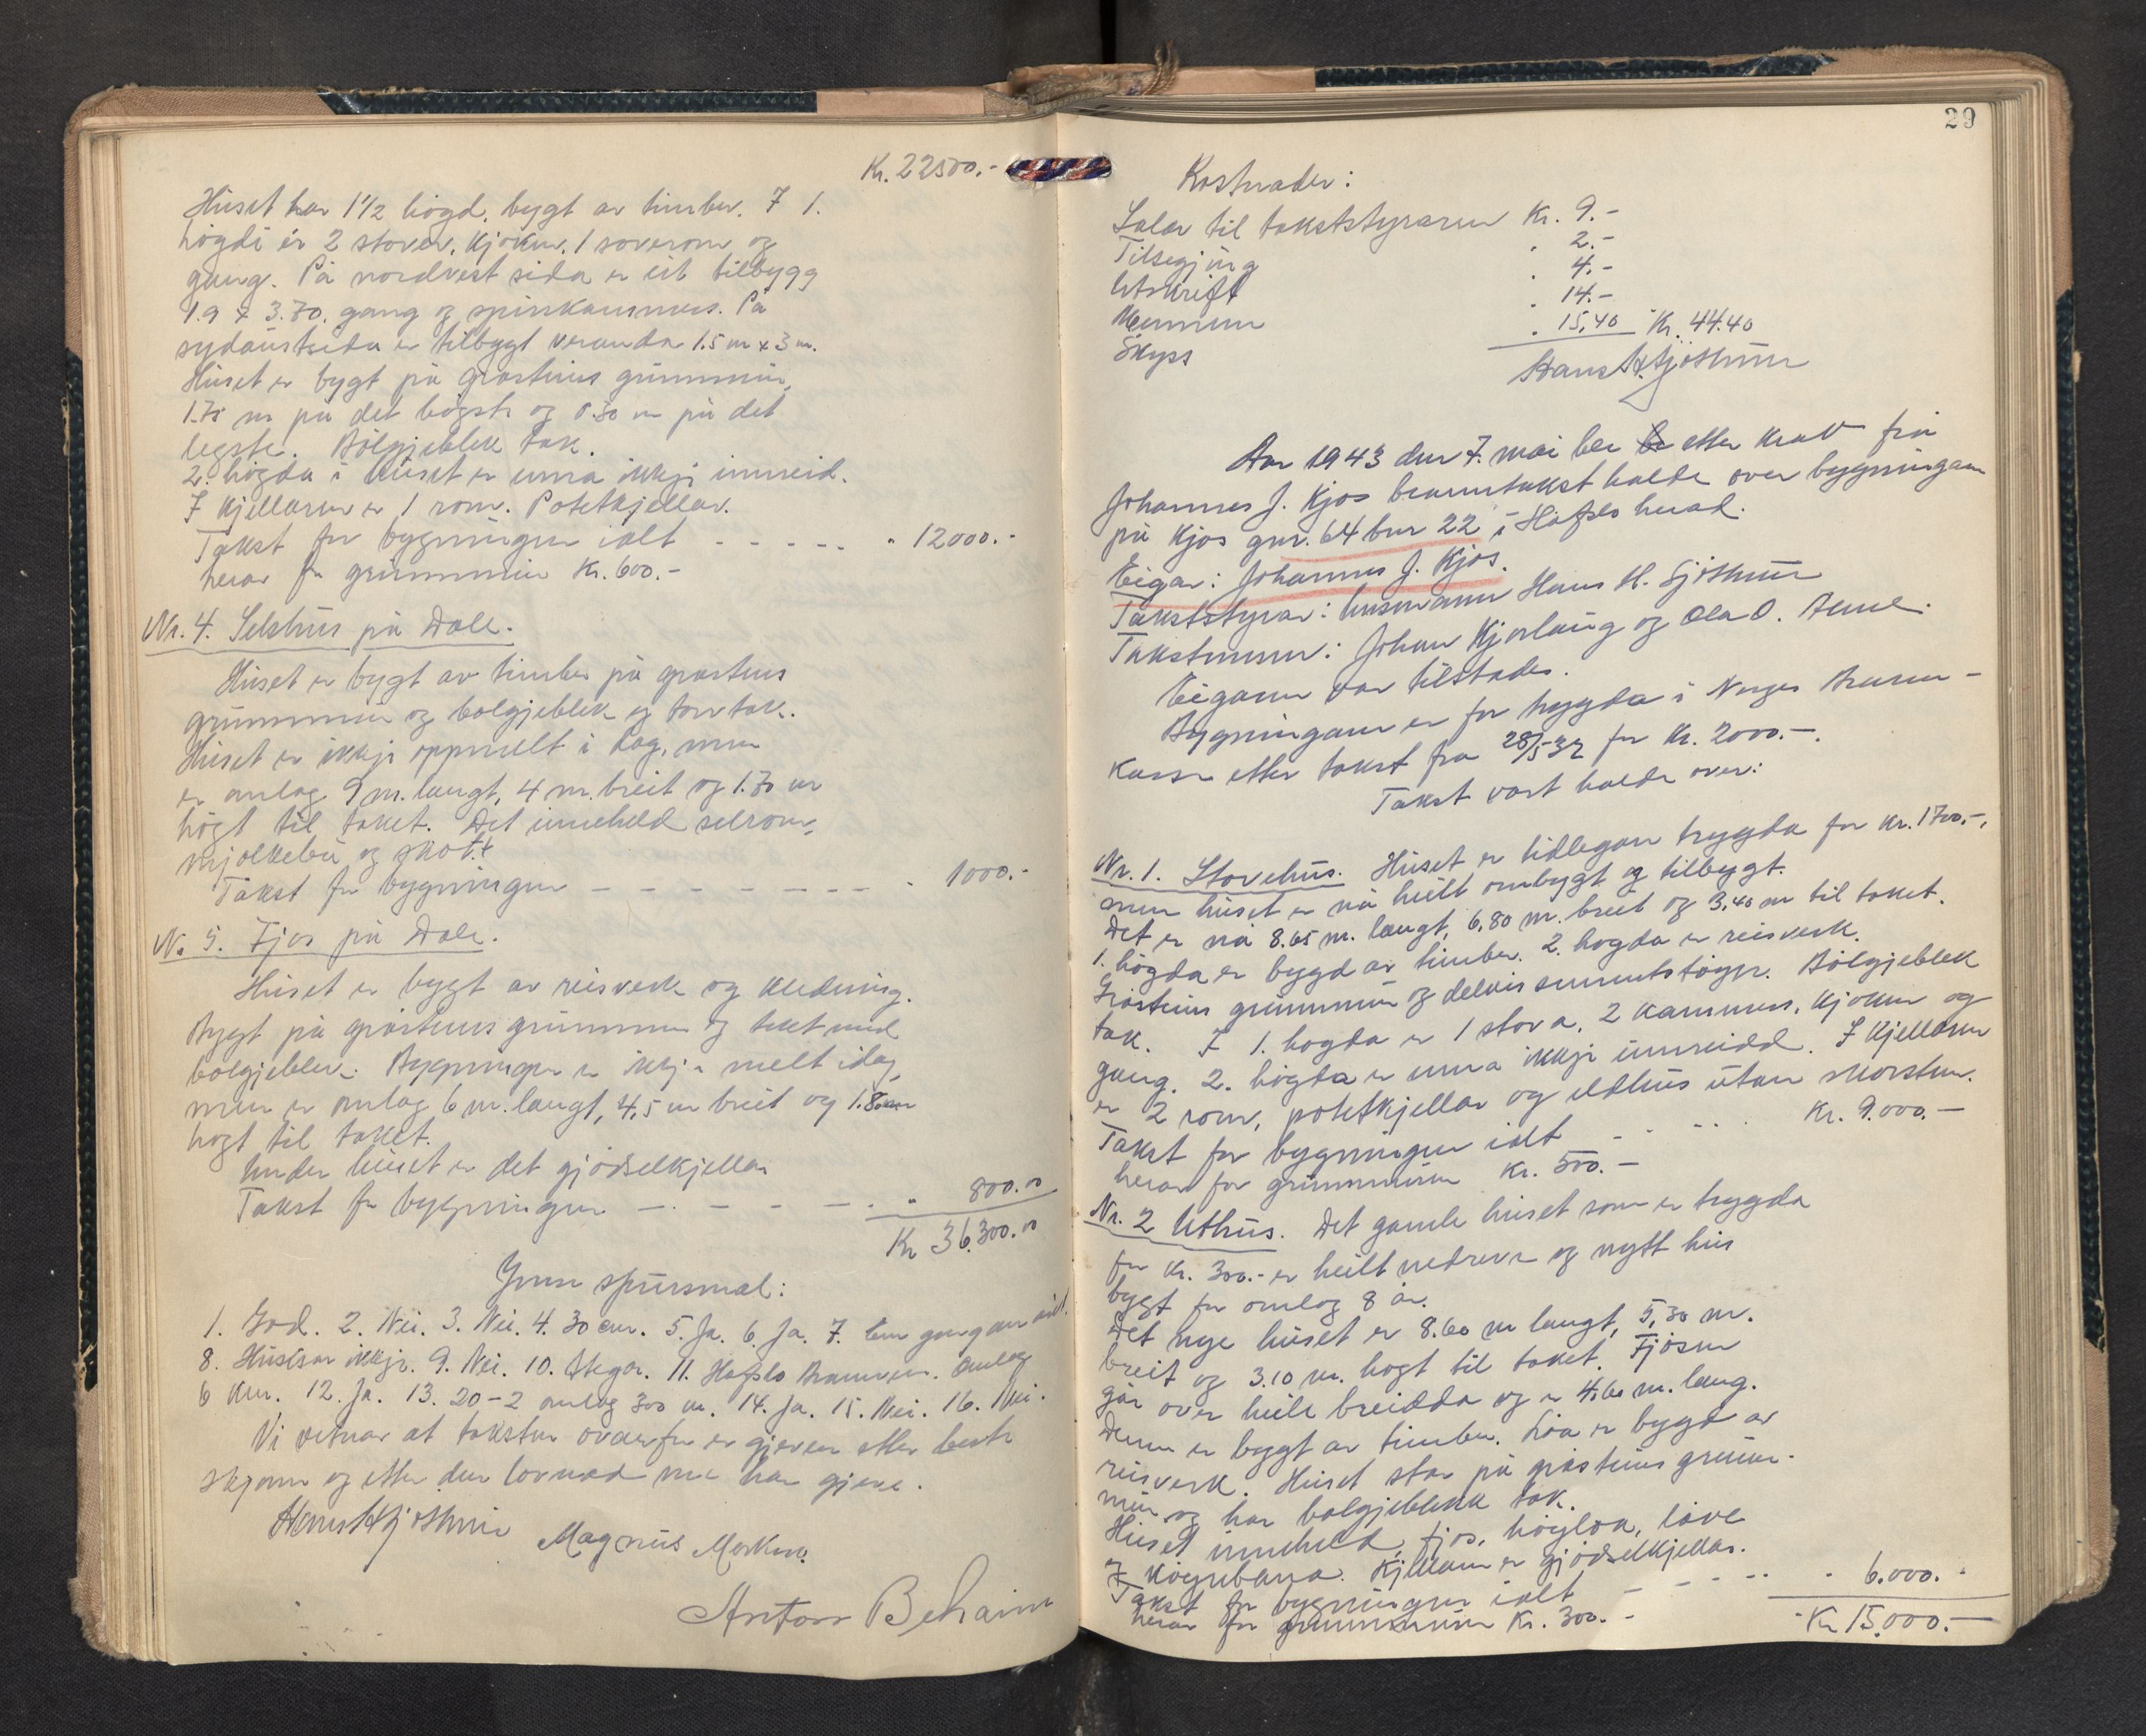 Kr. 22500.-
Huset har 1 1/2 høgd, bygt av timber. I 1.
høgdi er 2 stover, kjøken, 1 soverom og
gang. På nordvest sida er eit tilbygg
1.9 x 3.70. gang og spiskammers. På
sydaustsida er tilbygt veranda 1.5 m x 3 m.
Huset er bygt på gråsteins grunnmur,
1.75 m på det høgste og 0.50 m på det
legste. Bølgjeblek tak.
2. høgda i huset er enna ikkje innreid.
I kjellaren er 1 rom. Potetkjellar.
Takst for bygningen ialt - - - - - " 12000.-
herav for grunnmuren Kr. 600.-
Nr. 4. Selshus på Dale.
Huset er bygt av timber på gråsteins
grunnmur og bølgjeblek og torvtak.
Huset er ikkje oppmelt i dag, men
er omlag 9 m. langt, 4 m. breit og 1.70 m
høgt til taket. Det inneheld selrom,
mjølkebu og skott.
Takst for bygningen - - - - - - - - " 1000.-
Nr. 5. Fjos på Dale.
Huset er bygt av reisverk og kledning.
Bygt på gråsteins grunnmur og tekt med
bølgjeblek. Bygningen er ikkje melt idag,
men er omlag 6 m. langt, 4,5 m breit og 1.80 m
høgt til taket.
Under huset er det gjødselkjellar
Takst for bygningen - - - - - " 800.00
Kr 36.300.00
Ymse spursmål:
1. God. 2. Nei. 3. Nei. 4. 30 cm. 5. Ja. 6. Ja. 7. Ein gang om året.
8. Husisar ikkje. 9. Nei. 10. Stegar. 11. Hafslo Brannven. omlag
6 km. 12. Ja. 13. 20-2 omlag 300 m. 14. Ja. 15. Nei. 16. Nei.
Vi vitnar at taksten ovanfor er gjeven etter beste
skjønn og etter den lovnad me har gjeve.
Hans H. Sjøthun Magnus Mørkun.
Anton Beheim
29
Kostnader:
Salær til takststyraren Kr. 9.-
Tilsegjing " 2.-
Utskrift " 4.-
Mennene " 14.-
Skyss " 15,40 Kr. 44.40
Hans H. Sjøthun
Aar 1943 den 7. mai ble etter krav frå
Johannes J. Kjos branntakst halde over bygningane
på Kjos gnr. 64 bnr 22 i Hafslo herad.
Eigar: Johannes J. Kjos.
Takststyrar: lensmann Hans H. Sjøthun
Takstmenn: Johan Kjørlaug og Ola O. Beheim.
Eigaren var tilstades.
Bygningane er før trygda i Norges Brann-
kasse etter takst fra 28/5-32 for kr. 2000.-.
Takst vart halde over:
Nr. 1. Stovehus. Huset er tidlegare trygda for kr. 1700.-,
men huset er nå heilt ombygt og tilbygt.
Det er nå 8.65 m. langt, 6,80 m. breit og 3,40 m til taket.
1. høgda er bygd av timber. 2. høgda er reisverk.
Gråsteins grunnmur og delvis sementstøype. Bølgjeblek
tak. I 1. høgda er 1 stova, 2 kammers, kjøken og
gang. 2. høgda er enna ikkje innreidd. I kjellaren
er 2 rom, potetkjellar og eldhus utan skorstein.
Takst for bygningen ialt - - - - - Kr. 9.000.-
herav for grunnmuren Kr. 500.-
Nr. 2 Uthus. Det gamle huset som er trygda
for kr. 300.- er heilt nedreve og nytt hus
bygt for omlag 8 år.
Det nye huset er 8.60 m langt, 5,30 m.
breit og 3.10 m. høgt til taket. Fjosen
går over heile breidda og er 4.60 m. lang.
Denne er bygt av timber. Løa er bygd av
reisverk. Huset står på gråsteins grunn-
mur og har bølgjeblekk tak.
Huset inneheld fjos, høyløa, låve
og køyrebana. Kjellaren er gjødselkjellar.
Takst for bygningen ialt - - - - - " 6.000.-
herav for grunnmuren Kr. 300.-
Kr 15.000.-